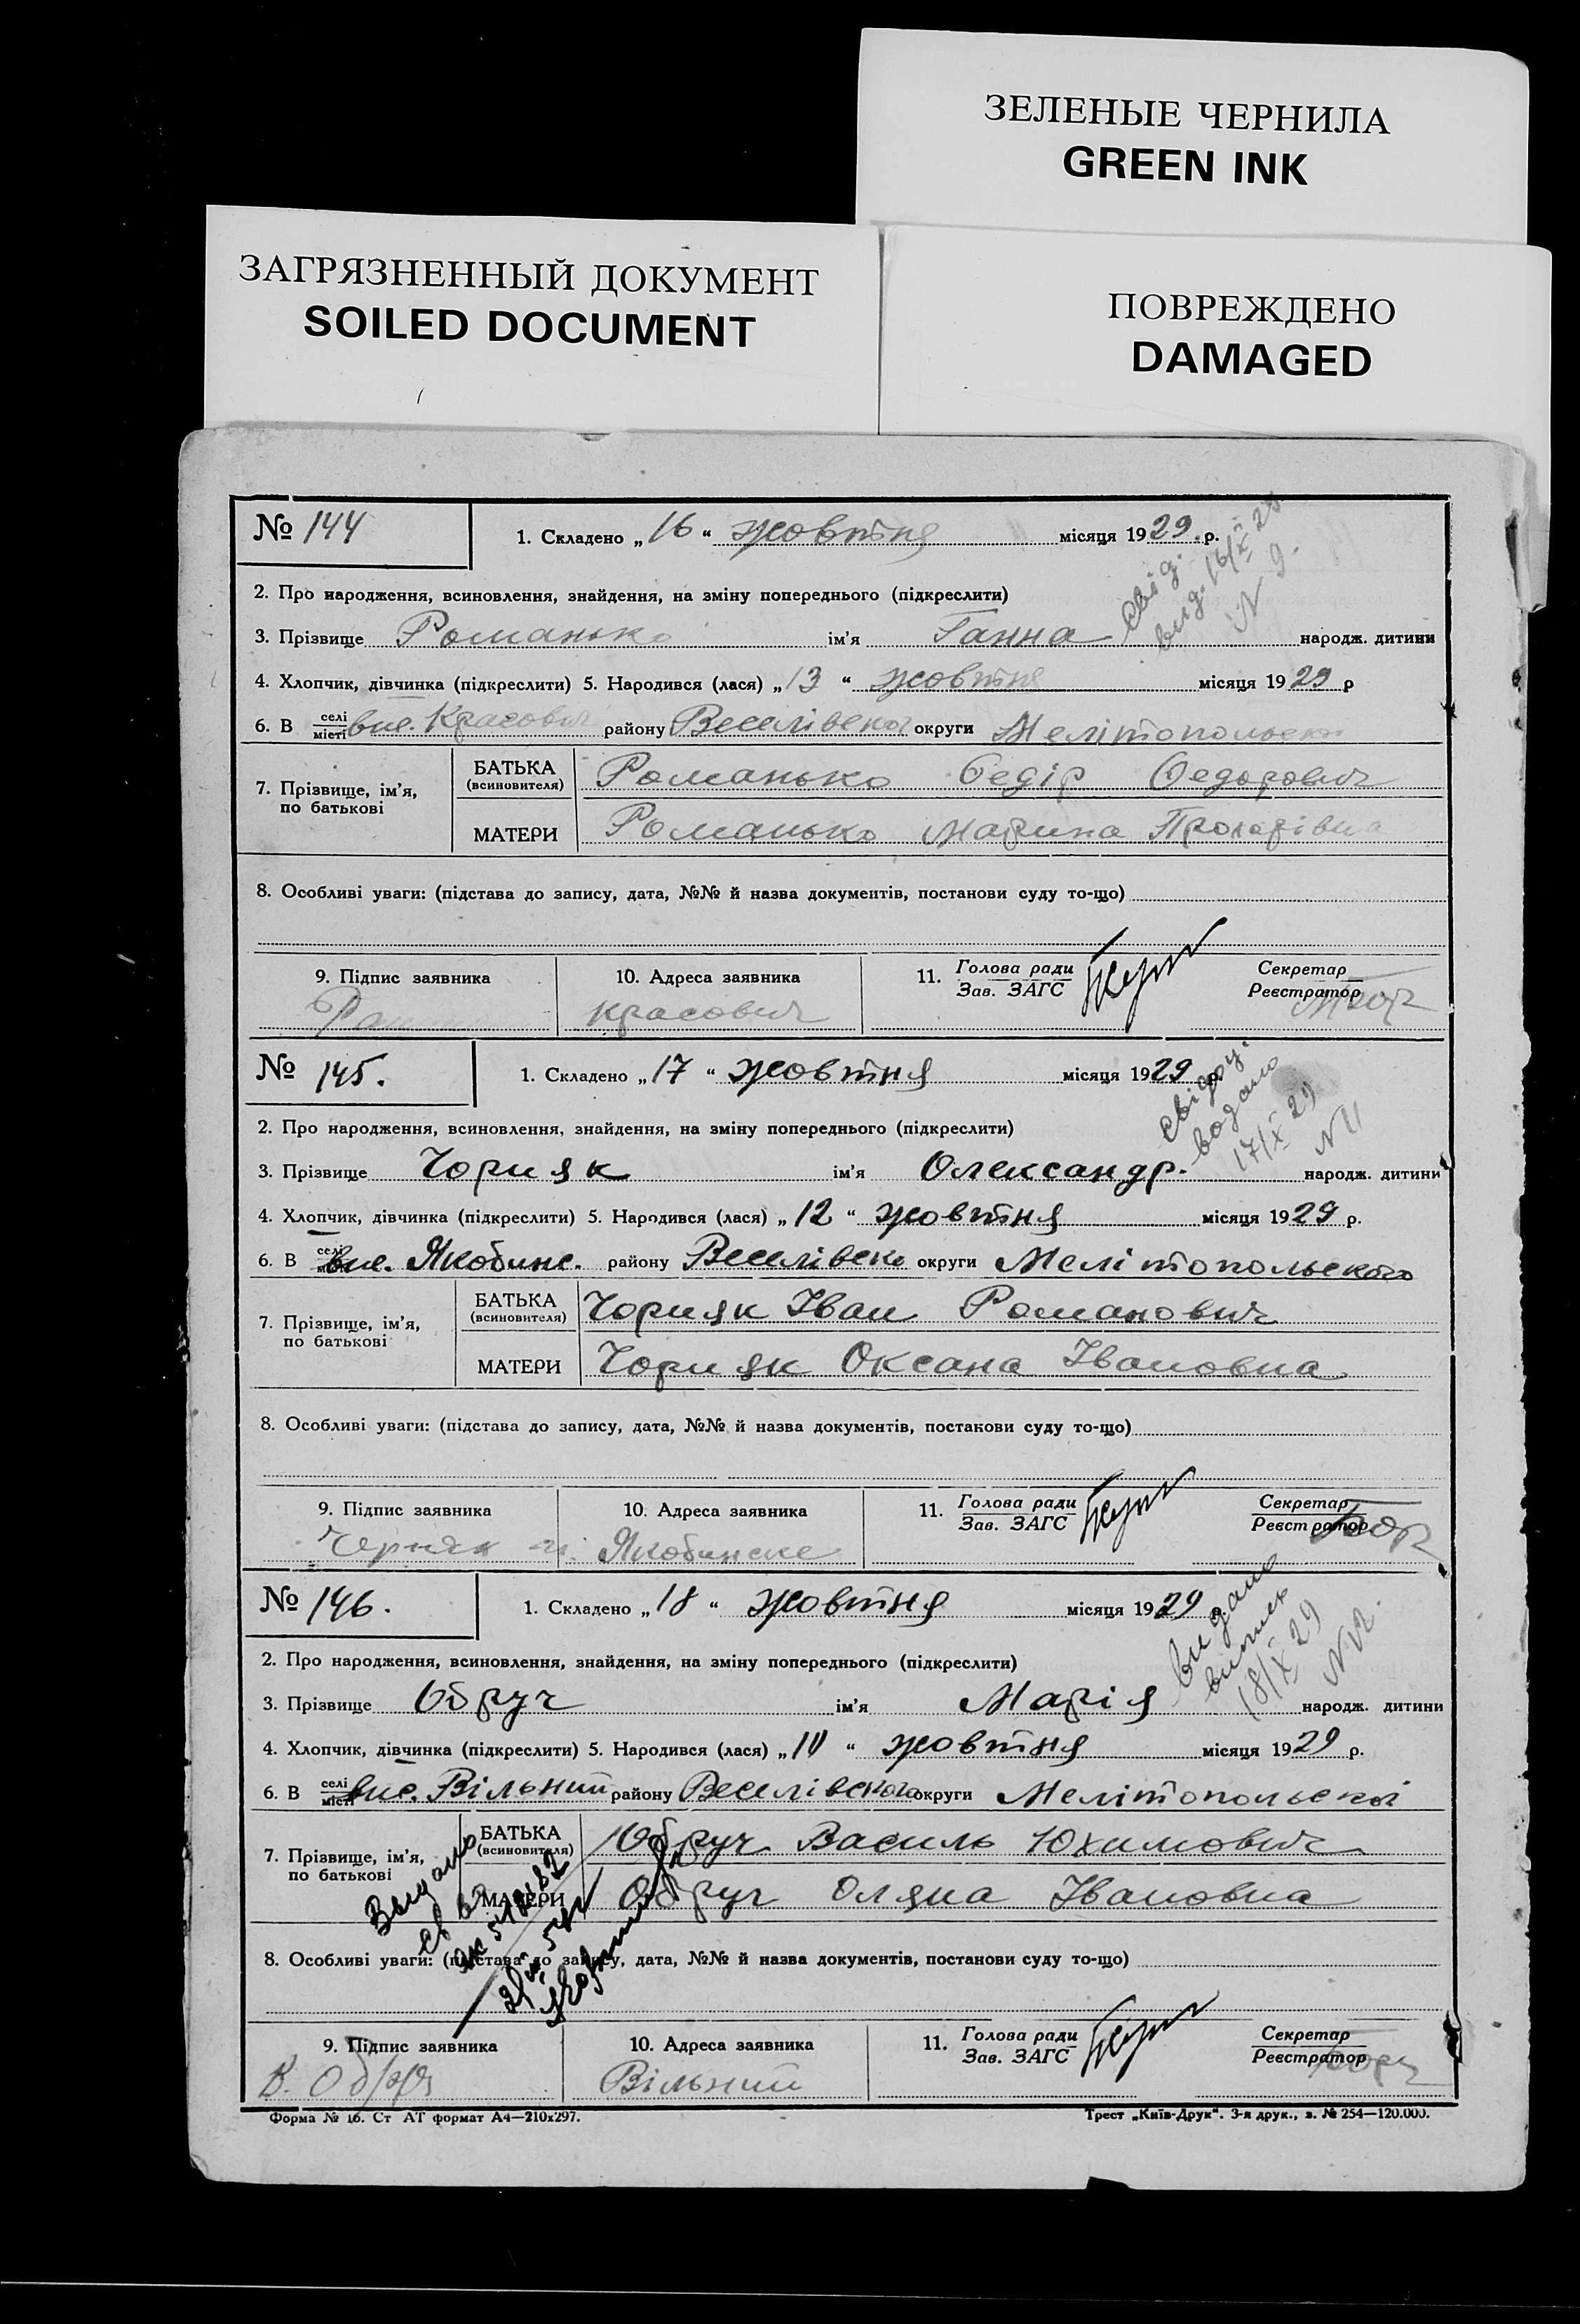 ЗЕЛЕНЫЕ ЧЕРНИЛА
GREEN INK
ЗАГРЯЗНЕННЫЙ ДОКУМЕНТ
SOILED DOCUMENT
ПОВРЕЖДЕНО
DAMAGED
№ 144 1. Складено „16“ жовтня місяця 1929 р.
свід.
вид. 16/X 29
N 9.
2. Про народження, всиновлення, знайдення, на зміну попереднього (підкреслити)
3. Прізвище Романько ім'я Ганна народж. дитини
4. Хлопчик, дівчинка (підкреслити) 5. Народився (лася) „13“ жовтня місяця 1929 р
6. В селі місті вис. Красович району Веселівськог округи Мелітопольськ
7. Прізвище, ім'я, по батькові
БАТЬКА (всиновителя) Романько Федір Федорович
МАТЕРИ Романько Марина
8. Особливі уваги: (підстава до запису, дата, №№ й назва документів, постанови суду то-що)
9. Підпис заявника 10. Адреса заявника 11. Голова ради Зав. ЗАГС Секретар Реєстратор
Красович
№ 145. 1. Складено „17“ жовтня місяця 1929 р.
свідоц.
водано
17/X 29
N 11
2. Про народження, всиновлення, знайдення, на зміну попереднього (підкреслити)
3. Прізвище Чорняк ім'я Олександр. народж. дитини
4. Хлопчик, дівчинка (підкреслити) 5. Народився (лася) „12“ жовтня місяця 1929 р.
6. В селі вис. Якобинс. району Веселівськ округи Мелітопольського
7. Прізвище, ім'я, по батькові
БАТЬКА (всиновителя) Чорняк Іван Романович
МАТЕРИ Чорняк Оксана Івановна
8. Особливі уваги: (підстава до запису, дата, №№ й назва документів, постанови суду то-що)
9. Підпис заявника 10. Адреса заявника 11. Голова ради Зав. ЗАГС Секретар Реєстратор
Черняк Якобинске
№ 146. 1. Складено „18“ жовтня місяця 1929 р.
видано
витись
18/X 29
N 12.
2. Про народження, всиновлення, знайдення, на зміну попереднього (підкреслити)
3. Прізвище Обруч ім'я Марія народж. дитини
4. Хлопчик, дівчинка (підкреслити) 5. Народився (лася) „10“ жовтня місяця 1929 р.
6. В селі місті вис. Вільний району Веселівського округи Мелітопольської
7. Прізвище, ім'я, по батькові
БАТЬКА (всиновителя) Обруч Василь Юхимович
МАТЕРИ Обруч Оляна Івановна
Выдано
8. Особливі уваги: (підстава до запису, дата, №№ й назва документів, постанови суду то-що)
9. Підпис заявника 10. Адреса заявника 11. Голова ради Зав. ЗАГС Секретар Реєстратор
Вільний
Форма № 16. Ст АТ формат А4—210х297. Трест „Київ-Друк“. 3-я друк., з. № 254—120.000.